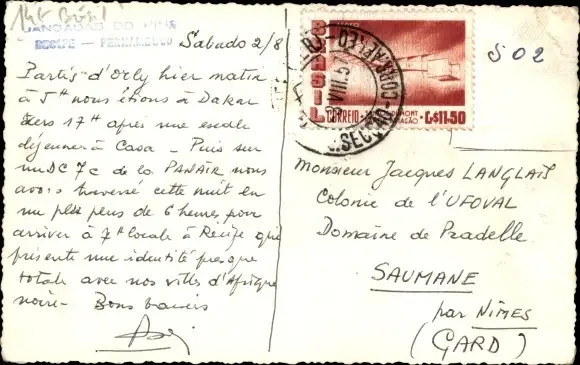 14F Brésil
JANGADAS DO PINA
RECIFE — PERNAMBUCO
Sabado 2/8
Partis d'Orly hier matin
à 5H nous étions à Dakar
vers 17H après une escale
déjeuner à Casa - Puis sur
un DC7c de la PANAIR nous
avons traversé cette nuit en
un peu plus de 6 heures pour
arriver à 7H locale à Recife qui
présente une identité presque
totale avec nos villes d'Afrique
noire - Bons baisers
BRASIL
CORREIO
DUMONT
AVIAÇÃO
CR$11,50
VIII.57
502
Monsieur Jacques LANGLAIS
Colonie de l'UFOVAL
Domaine de Pradelle
SAUMANE
par NÎMES
(GARD)